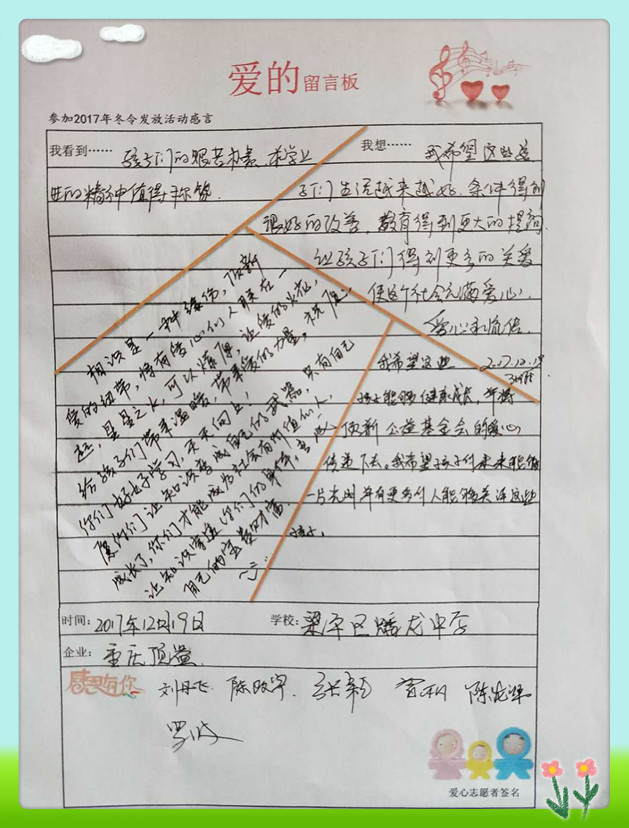 爱的留言板
参加2017年冬令发放活动感言
我看到……
孩子们的艰苦朴素、求学上
进的精神值得称赞。
我想……
我希望这些孩
子们生活越来越好。条件得到
很好的改善，教育得到更大的提高
让孩子们得到更多的关爱
使这个社会充满爱心
爱心永流传。
2017.12.19
相识是一种缘份，顶新
爱的纽带，将有爱心的人联在一
起，星星之火，可以燎原，让爱的火花，
给孩子们带来温暖，带来爱的力量，祝愿
你们好好学习，天天向上！
让知识变成自己的武器，只有自己
成长了，你们才能成为社会有价值的人，
让知识穿透你们的身体，变成
自己的宝贵财富
我希望这些
孩子能够健康成长，并将
顶新公益基金会的爱心
传递下去。我希望孩子们未来能够
一片光明并有更多的人能够关注这些
孩子。
时间：2017年12月19日
学校：梁平区蟠龙中学
企业：重庆顶益
感恩有你
刘丹飞
张颖
罗波
爱心志愿者签名